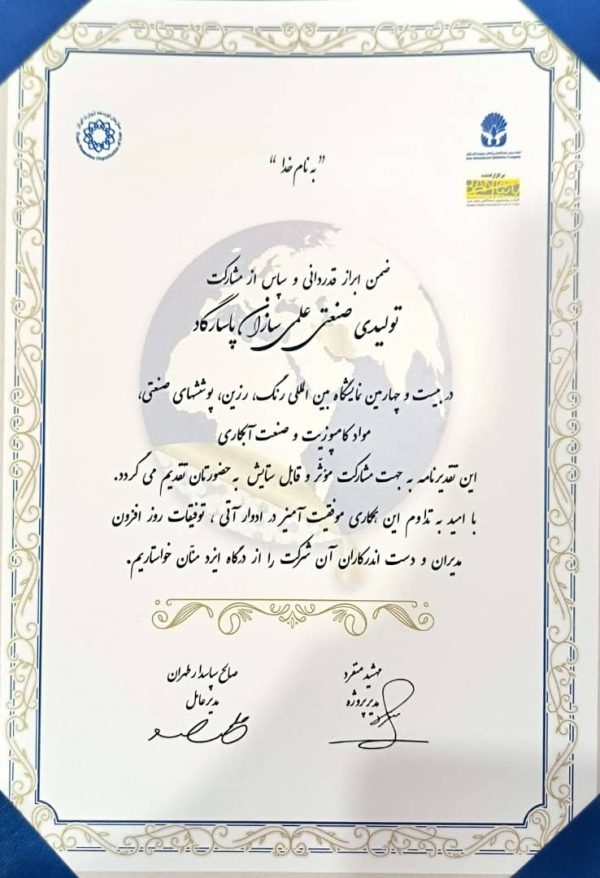 "به نام خدا"
برگزارکننده
ضمن ابراز قدردانی و سپاس از مشارکت
تولیدی صنعتی علمی سازان پاسارگاد
در بیست و چهارمین نمایشگاه بین المللی رنگ، رزین، پوششهای صنعتی،
مواد کامپوزیت و صنعت آبکاری
این تقدیرنامه به جهت مشارکت مؤثر و قابل ستایش به حضورتان تقدیم می گردد.
با امید به تداوم این همکاری موفقیت آمیز در ادوار آتی، توفیقات روز افزون
مدیران و دست اندرکاران آن شرکت را از درگاه ایزد منّان خواستاریم.
مهشید متفرد
مدیر پروژه
صالح سپاسدار طهران
مدیرعامل